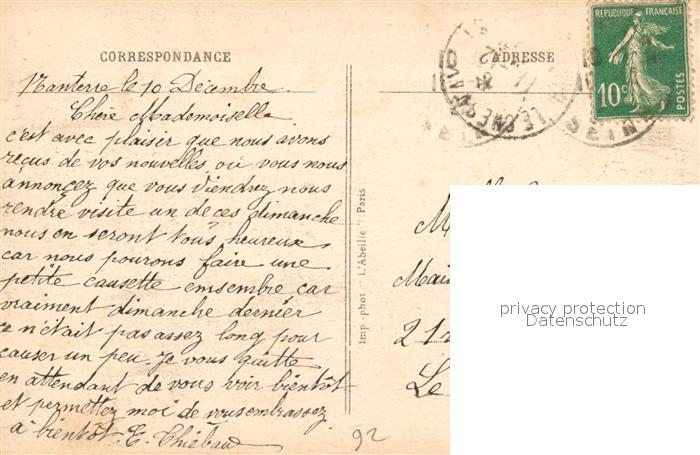 CORRESPONDANCE
ADRESSE
REPUBLIQUE FRANÇAISE
10c
POSTES
Nanterre le 10 Décembre
Chère Mademoiselle
c'est avec plaisir que nous avons
reçus de vos nouvelles où vous nous
annonçez que vous viendrez nous
rendre visite un de ces dimanche
nous en seront tous heureux
car nous pourons faire une
petite causette emsemble car
vraiment dimanche dernier
ce n'était pas assez long pour
causer un peu. Je vous quitte
en attendant de vous voir bientôt
et permettez moi de vous embrassez
à bientôt. E. Thiébau
Imp-phot "L'Abeille" Paris
M
Mai
21
Le
privacy protection
Datenschutz
92